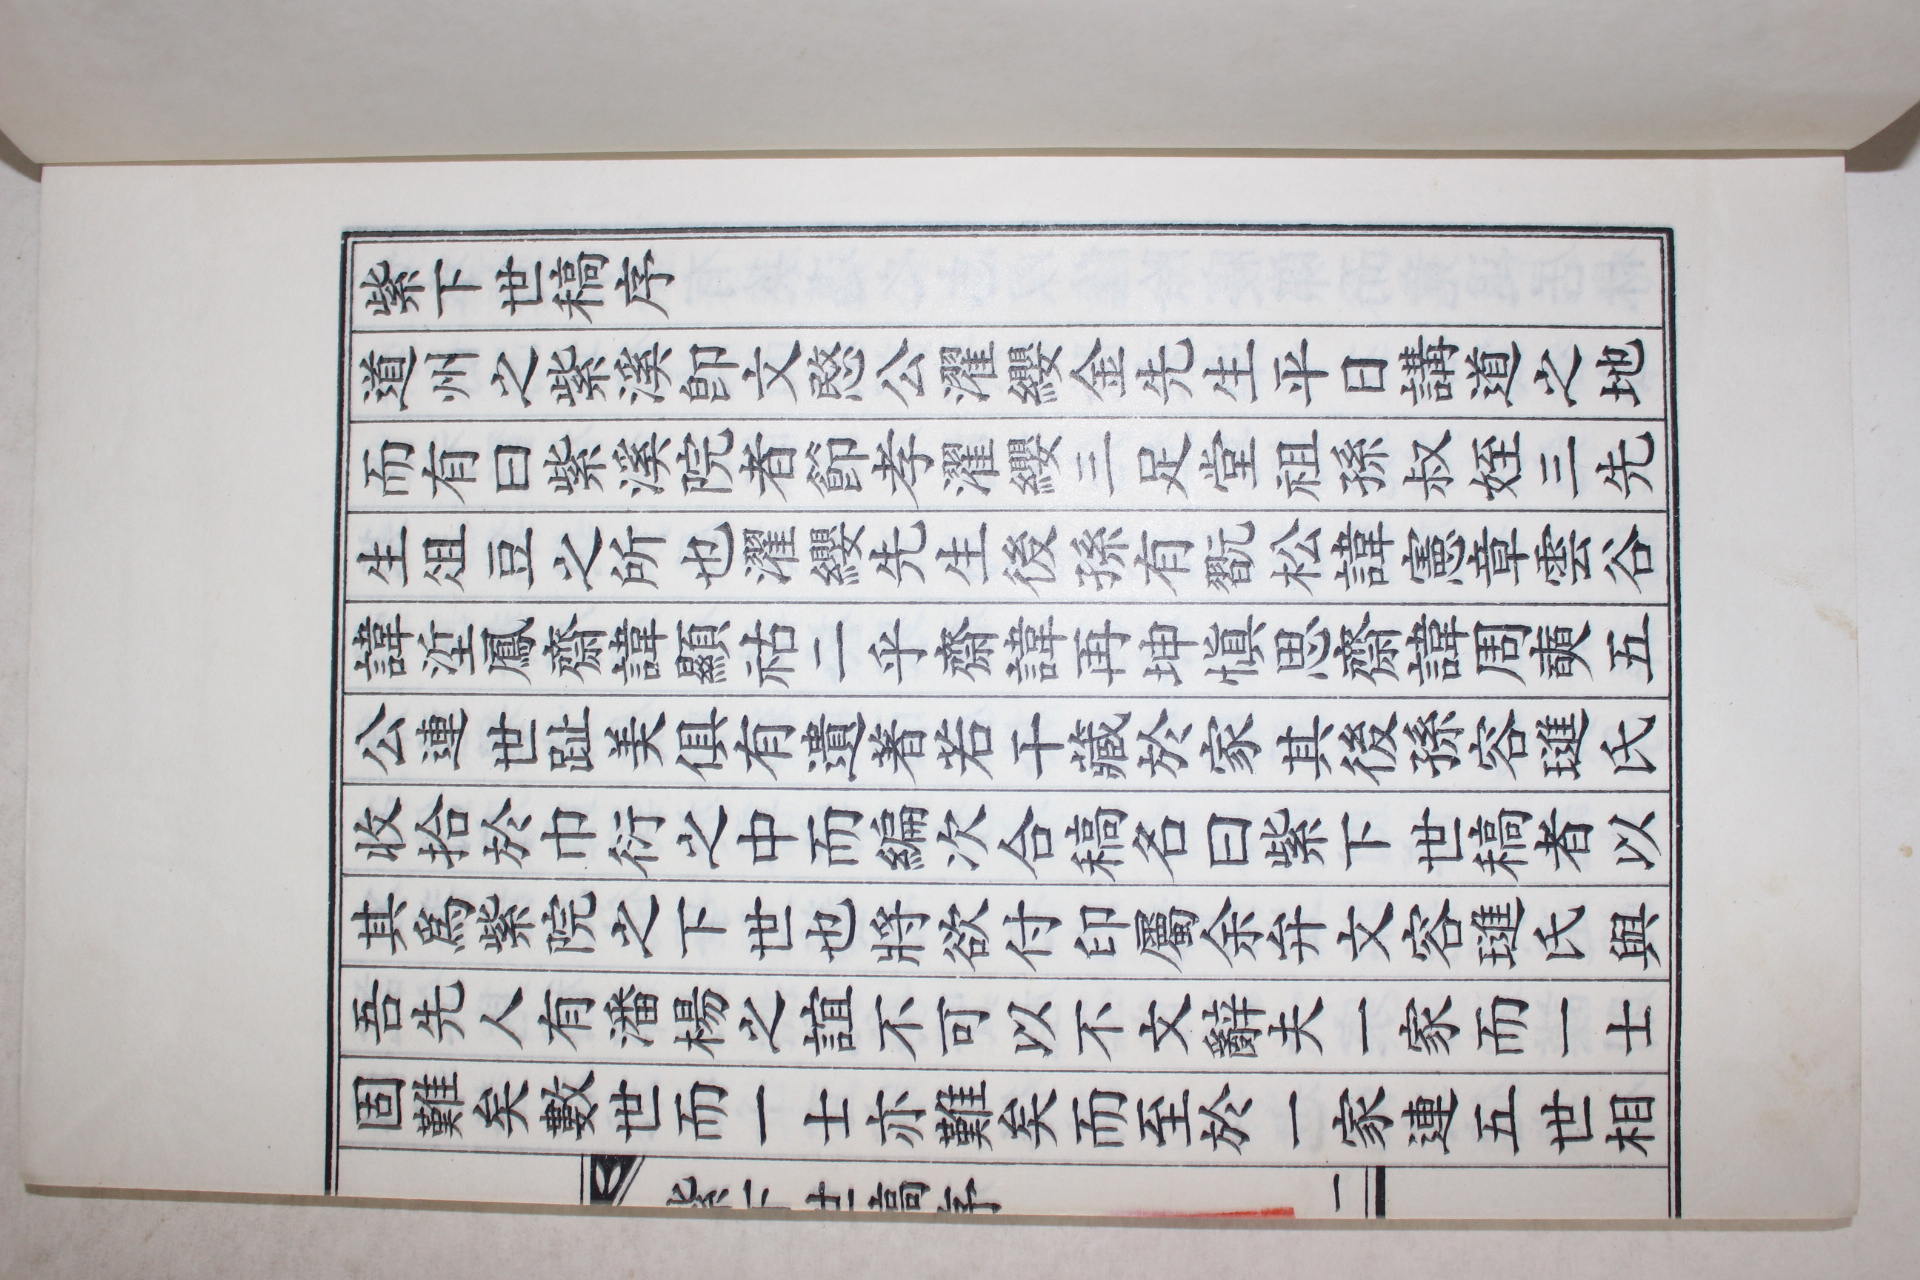 紫下世稿序
道州之紫溪卽文愍公濯纓金先生平日講道之地
而有曰紫溪院者節孝濯纓三足堂祖孫叔姪三先
生俎豆之所也濯纓先生後孫有翫松諱憲章雲谷
諱洤鳳齋諱顯祜二乎齋諱再坤愼思齋諱周奭五
公連世趾美俱有遺著若干藏於家其後孫容璡氏
收拾於巾衍之中而編次合稿名曰紫下世稿者以
其爲紫院之下世也將欲付印屬余弁文容璡氏與
吾先人有潘楊之誼不可以不文辭夫一家而一士
固難矣數世而一士亦難矣而至於一家連五世相
紫下世稿序 一